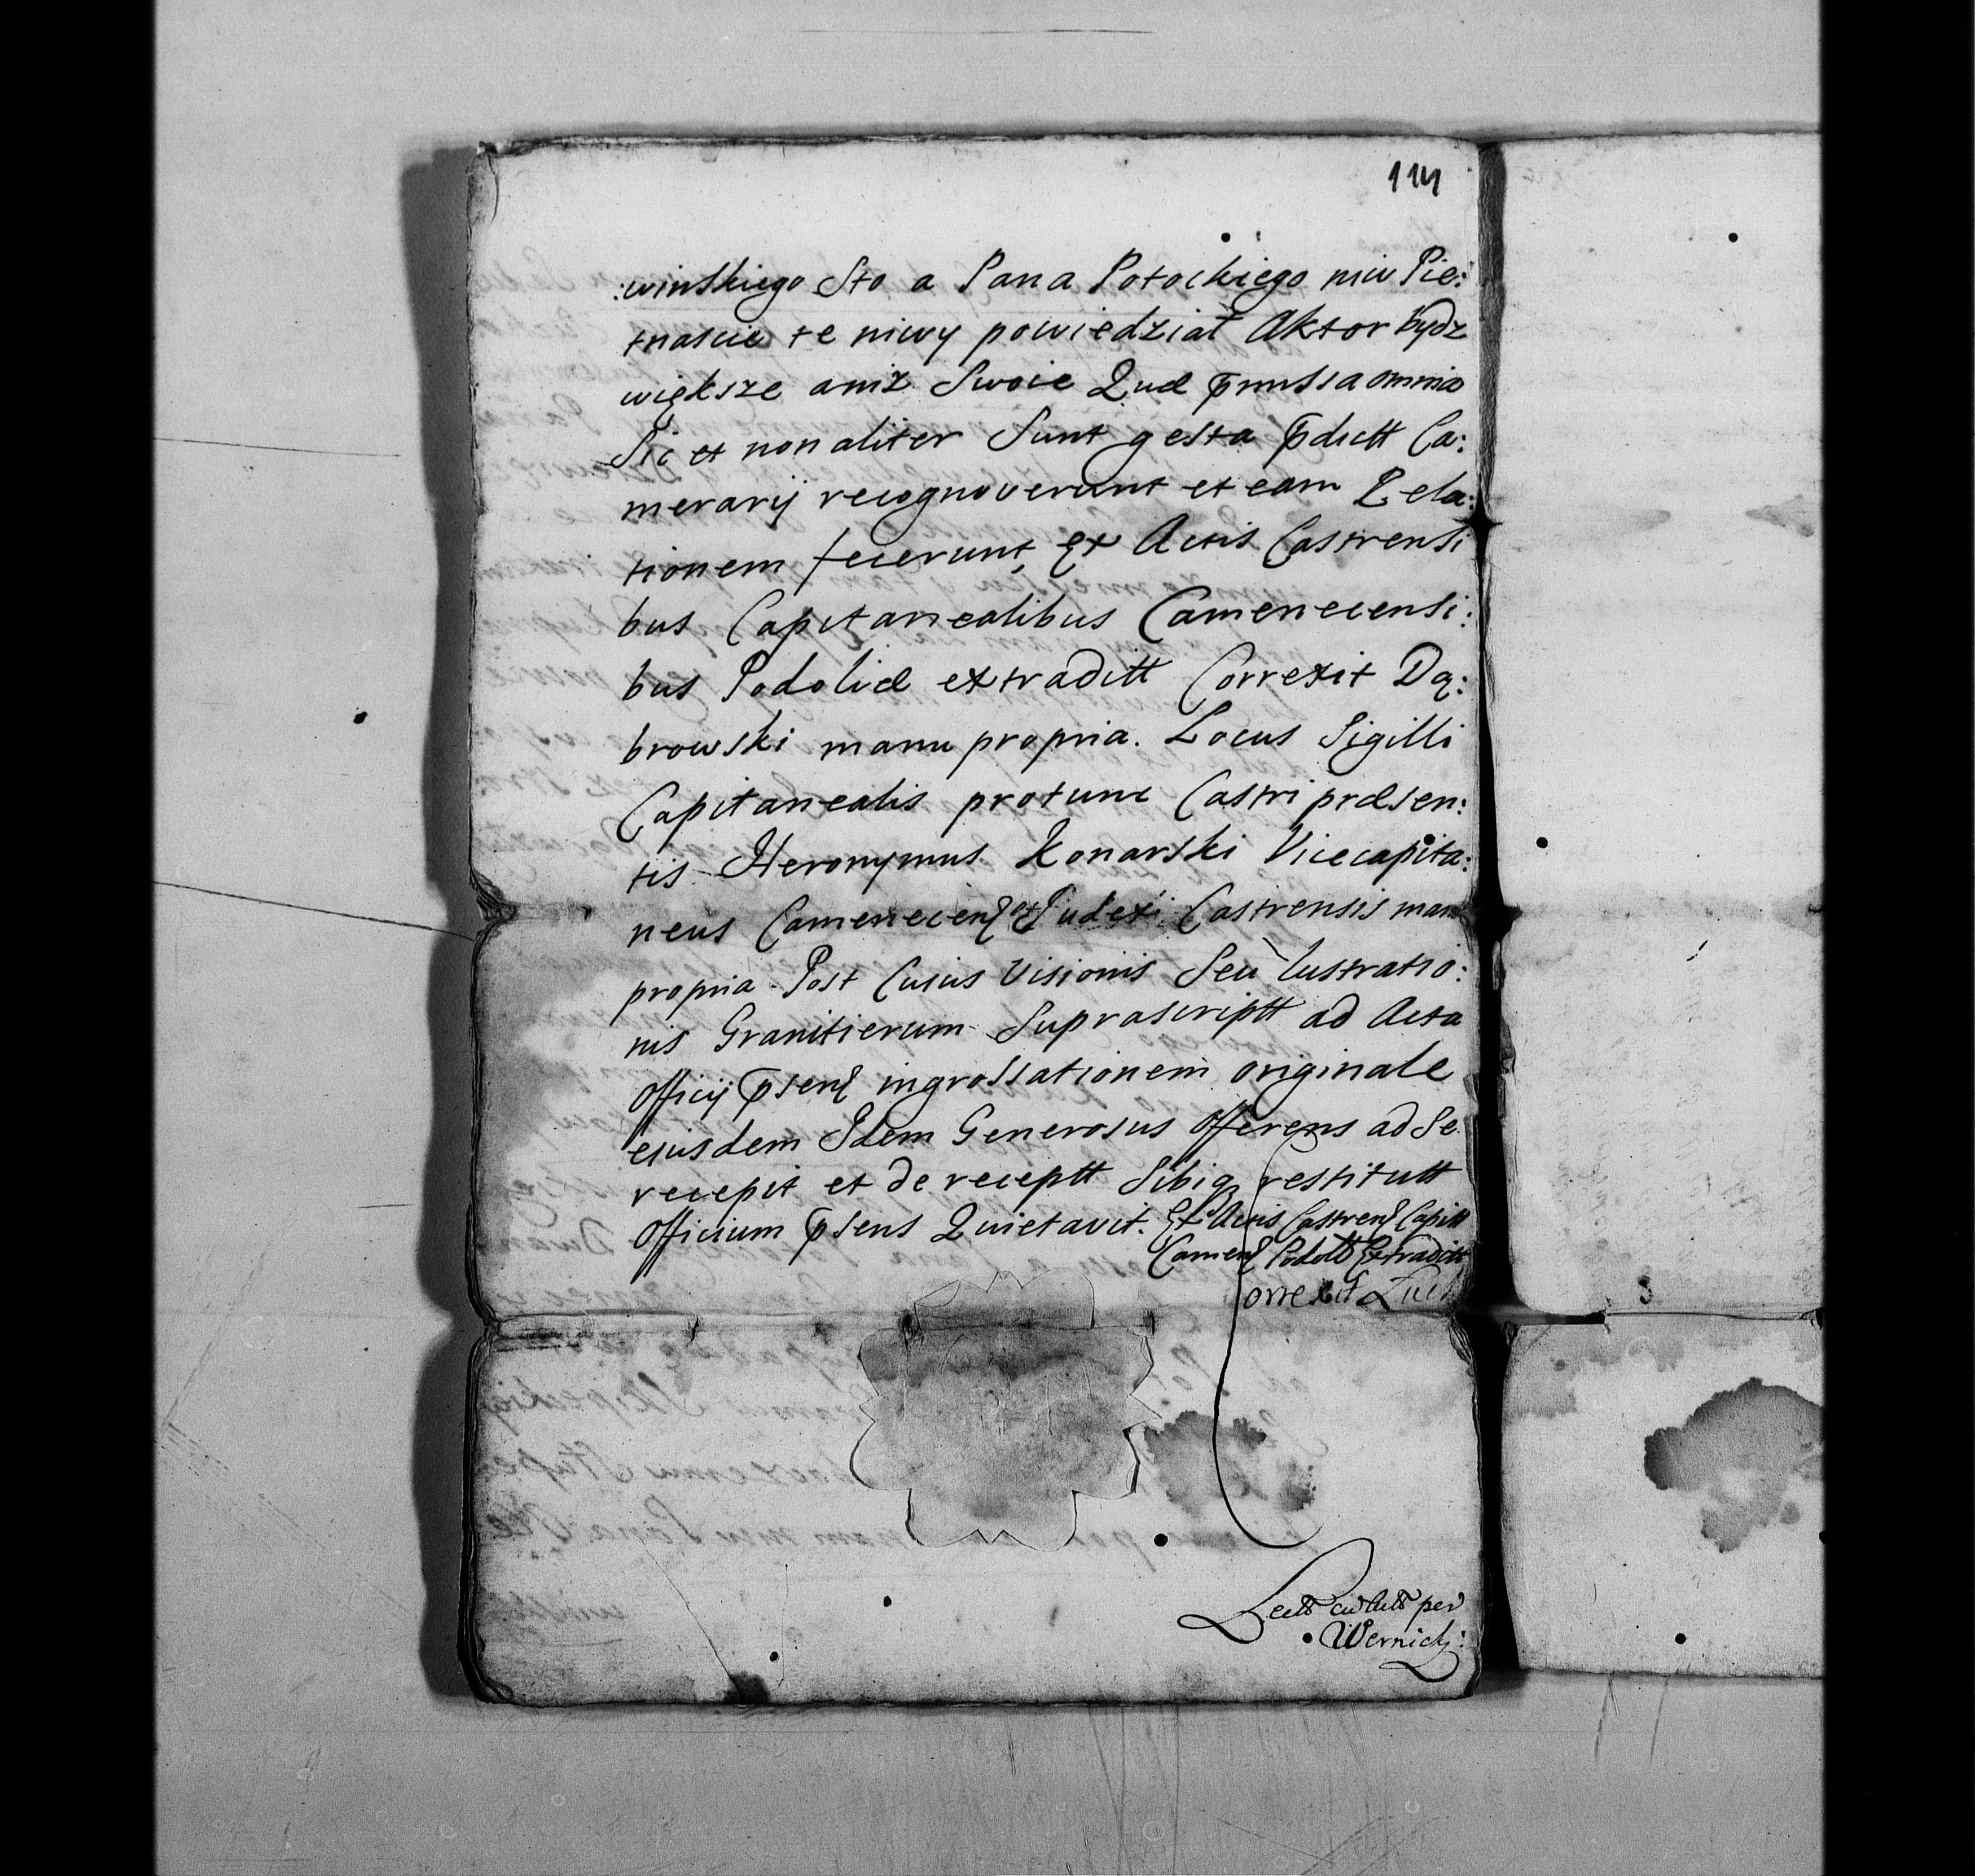 114
:winskiego Sto a Pana Potockiego niw Pie:
tnascie te niwy powiedział Aktor bydz
większe aniż Swoie Quæ p̄missa omnia
Sic et non aliter Sunt gesta p̄dictt Ca:
merarij recognoverunt et eam Rela:
tionem fecerunt, Ex Actis Castrensi
bus Capitanealibus Camenecensi:
bus Podoliæ extraditt Correxit Dą:
browski manu propria. Locus Sigilli
Capitanealis protunc Castri præsen:
tis Heronymus Konarski Vicecapita:
neus Camenecens et Judex Castrensis man
propria Post Cuius Visionis Seu lustratio:
nis Granitierum Suprascriptt ad Acta
Officij p̄sens ingrossationem originale
eiusdem Idem Generosus Offerens ad Se
recepit et de receptt Sibiq restitutt
Officium p̄sens Quietavit. Ex Actis Castrens Capitt
Camens Podott Extraditt
orrexit
Lectt per
Wernick: